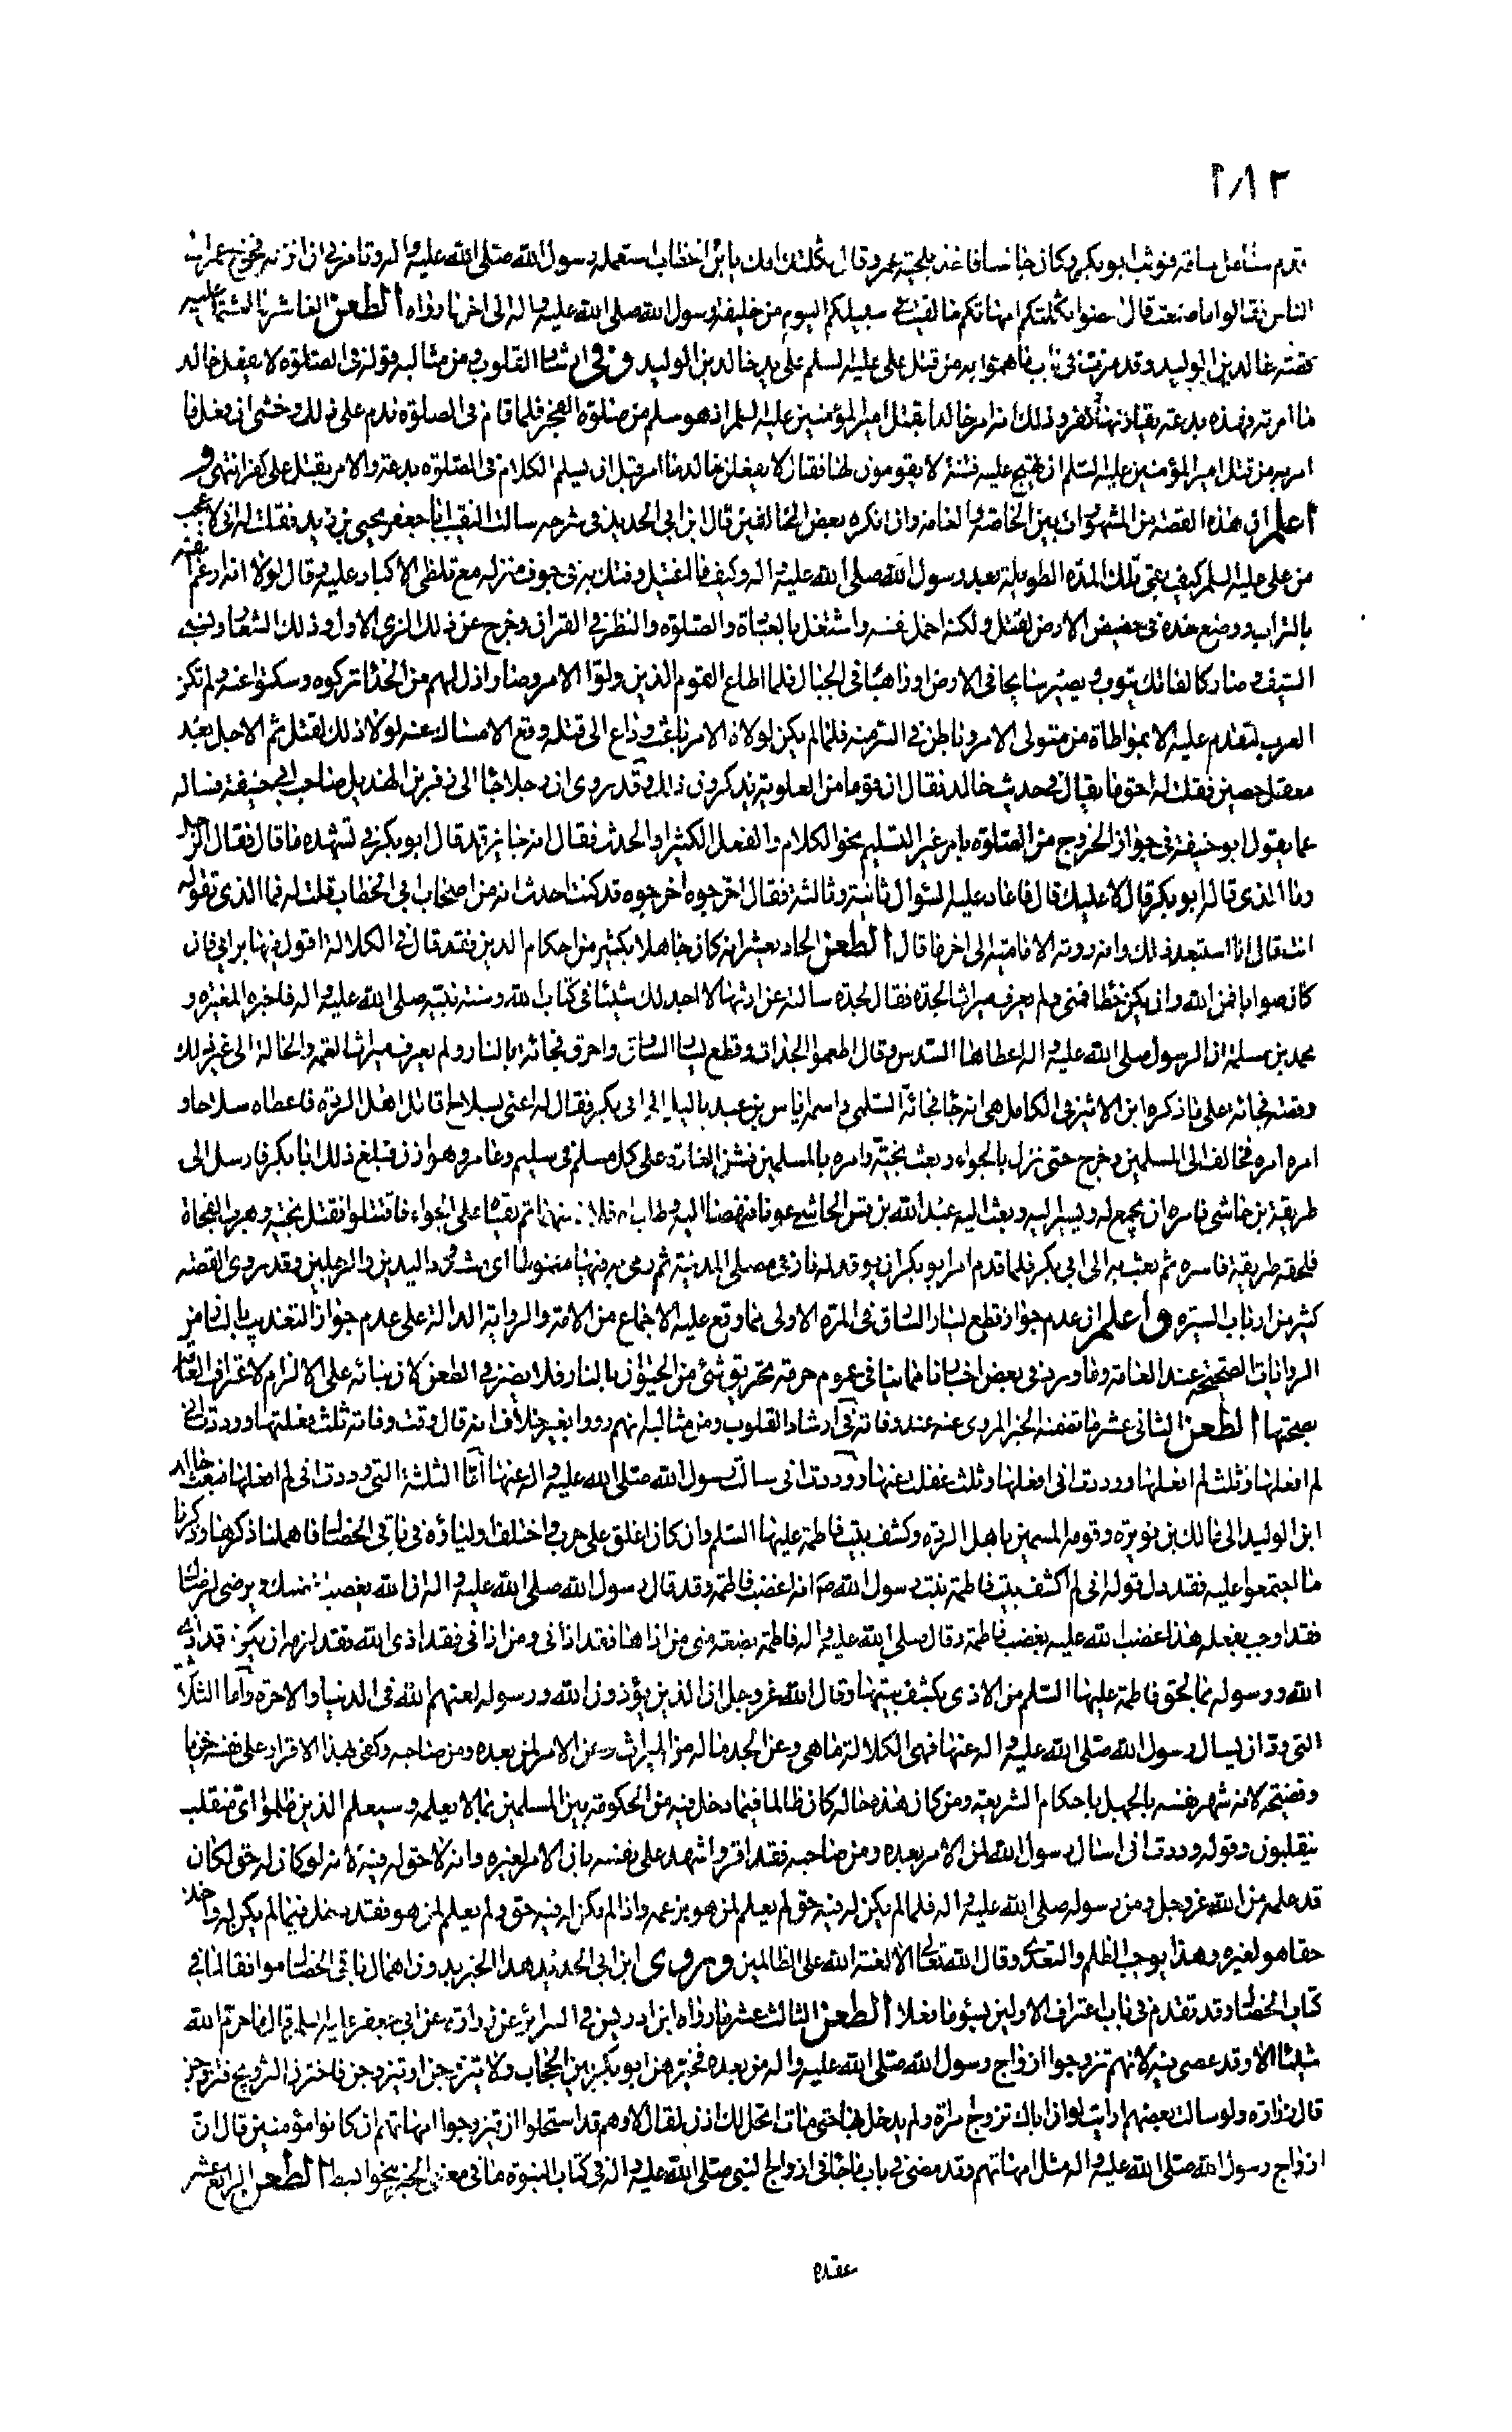 ٢٨٣
اقدم سنا من اسامة فوثب ابو بكر و كان جالسا فاخذ بلحية عمر و قال ثكلتك امك يا بن الخطاب استعمله رسول الله صلى الله عليه و اله و تامرني ان انزعه فخرج عمر الى
الناس فقالوا ما صنعت قال امضوا ثكلتكم امهاتكم ما لقيت في سبيلكم اليوم من خليفة رسول الله صلى الله عليه و اله الى اخر ما رواه الطعن العاشر
قصة خالد بن الوليد و قد مرت في باب ما هموا به من قتل علي عليه السلم على يد خالد بن الوليد و في ارشاد القلوب و من مثالبه قوله في الصلوة لا يفعل خالد
ما امرته و هذه بدعة و ذلك انه امر خالدا بقتل امير المؤمنين عليه السلم اذ هو سلم من صلوة الفجر فلما قام في الصلوة ندم على ذلك و خشي ان فعل ما
امر به من قتل امير المؤمنين عليه السلم ان تهيج عليه فتنة لا يقومون لها فقال لا يفعلن خالد ما امر قبل ان يسلم الكلام في الصلوة بدعة و الامر بقتل علي كفر انتهى و
اعلم ان هذه القصة من المشهورات بين الخاصة و العامة و ان انكره بعض المخالفين قال ابن ابي الحديد في شرحه سالت النقيب ابا جعفر يحيى بن زيد فقلت له اني لاعجب
من علي عليه السلم كيف بقي تلك المدة الطويلة بعد رسول الله صلى الله عليه و اله و كيف ما اغتيل و فتك به في جوف منزله مع تلظي الاكباد عليه فقال لولا انه ارغم انفه
بالتراب و وضع خده في حضيض الارض لقتل و لكنه اخمل نفسه و اشتغل بالعبادة و الصلوة و النظر في القران و خرج عن ذلك الزي الاول و ذلك الشعار و نسي
السيف و صار كالفاتك يتوب و يصير سايحا في الارض او راهبا في الجبال فلما اطاع القوم الذين ولوا الامر و صار اذل لهم من الحذاء تركوه و سكتوا عنه و لم تكن
العرب لتقدم عليه الا بمواطاة من متولي الامر و باطن في السر منه فلما لم يكن لولاة الامر باعث و داع الى قتله وقع الامساك عنه و لولا ذلك لقتل ثم الاجل بعد
معقل حصين فقلت له احق ما يقال في حديث خالد فقال ان قوما من العلوية يذكرون ذلك و قد روي ان رجلا جاء الى زفر بن الهذيل صاحب ابي حنيفة فساله
عما يقول ابو حنيفة في جواز الخروج من الصلوة بامر غير التسليم نحو الكلام و الفعل الكثير او الحدث فقال انه جايز قد قال ابو بكر في تشهده ما قال فقال الرجل
و ما الذي قاله ابو بكر قال لا عليك قال فاعاد عليه السؤال ثانية و ثالثة فقال اخرجوه اخرجوه قد كنت احدث انه من اصحاب ابي الخطاب قلت له فما الذي تقوله
انت قال انا استبعد ذلك و انه روته الامامية الى اخر ما قال الطعن الحاديعشر انه كان جاهلا بكثير من احكام الدين فقد قال في الكلالة اقول فيها برايي فان
كان صوابا فمن الله و ان يكن خطا فمني و لم يعرف ميراث الجدة فقال لجدة سالته عن ارثها لا اجد لك شيئا في كتاب الله و سنة نبيه صلى الله عليه و اله فاخبره المغيرة و
محمد بن مسلمة ان الرسول صلى الله عليه و اله اعطاها السدس و قال اطعموا الجدات و قطع يسار السارق و احرق فجائة بالنار و لم يعرف ميراث العمة و الخالة الى غير ذلك
و قصة فجائة على ما ذكره ابن الاثير في الكامل هي انه جاء فجائة السلمي و اسمه اياس بن عبد ياليل الى ابي بكر فقال له اعني بسلاح اقاتل اهل الردة فاعطاه سلاحا و
امره امره فخالف الى المسلمين و خرج حتى نزل بالجواء و بعث نجبة و امره بالمسلمين فشن الغارة على كل مسلم في سليم و عامر و هوازن فبلغ ذلك ابا بكر فارسل الى
طريفة بن حاشي فامره ان يجمع له و يسير اليه و بعث اليه عبد الله بن قيس الحاشي عونا فنهضا اليه و طلباه فلاذ منهما ثم لقيا على الجواء فاقتتلوا فقتل نجبة و هرب الفجاة
فلحقه طريفة فاسره ثم بعث به الى ابي بكر فلما قدم امر ابو بكر ان يوقد له نار في مصلى المدينة ثم رمي به فيها مقموطا اي مشدود اليدين و الرجلين و قد روى القصة
كثير من ارباب السيرة و اعلم ان عدم جواز قطع يسار السارق في المرة الاولى مما وقع عليه الاجماع من الامة و الرواية الدالة على عدم جواز التعذيب بالنار من
الروايات الصحيحة عند العامة و ما ورد في بعض اخبارنا مما ينافي عموم حرمة تحريق شئ من الحيوان بالنار فلا يضر في الطعن لان بنائه على الالزام لاعتراف العامة
بصحتها الطعن الثاني عشر ما تضمنه الخبر المروي عنه عند وفاته في ارشاد القلوب و من مثالبه انهم رووا بغير خلاف انه قال وقت وفاته ثلث فعلتها و وددت اني
لم افعلها و ثلث لم افعلها و وددت اني افعلها و ثلث غفلت عنها و وددت اني سالت رسول الله صلى الله عليه و اله عنها اما الثلثة التي وددت اني لم افعلها فبعث خالد
ابن الوليد الى مالك بن نويرة و قومه المسمين باهل الردة و كشف بيت فاطمة عليها السلم و ان كان اغلق على حرب و اختلف اولياؤه في باقي الخصال فاهملنا ذكرها و ذكرنا
ما اجتمعوا عليه فقد دل قوله اني لم اكشف بيت فاطمة بنت رسول الله ص انه اغضب فاطمة و قد قال رسول الله صلى الله عليه و اله ان الله يغضب لغضبك و يرضى لرضاك
فقد اوجب بفعله هذا غضب الله عليه بغضب فاطمة و قال صلى الله عليه و اله فاطمة بضعة مني من اذاها فقد اذاني و من اذاني فقد اذى الله فقد لزمه ان يكون قد اذى
الله و رسوله بما لحق فاطمة عليها السلم من الاذى بكشف بيتها و قال الله عز و جل ان الذين يؤذون الله و رسوله لعنهم الله في الدنيا و الاخرة و اما الثلاث
التي ود ان يسال رسول الله صلى الله عليه و اله عنها فهي الكلالة ما هي و عن الجد ما له من الميراث و عن الامر لمن بعده و من صاحبه و كفى بهذا الاقرار على نفسه خزيا
و فضيحة لانه شهر نفسه بالجهل باحكام الشريعة و من كان هذه حاله كان ظالما فيما دخل فيه من الحكومة بين المسلمين بما لا يعلمه و سيعلم الذين ظلموا اي منقلب
ينقلبون و قوله وددت اني اسال رسول الله لمن الامر بعده و من صاحبه فقد اقر و اشهد على نفسه بان الامر لغيره و انه لا حق له فيه لانه لو كان له حق لكان
قد علمه من الله عز و جل و من رسوله صلى الله عليه و اله فلما لم يكن له فيه حق لم يعلم لمن هو بزعمه و اذا لم يكن له فيه حق و لم يعلم لمن هو فقد دخل فيما لم يكن له و اخذ
حقا هو لغيره و هذا يوجب الظلم و التعدي و قال الله تعالى الا لعنة الله على الظالمين و روى ابن ابي الحديد هذا الخبر بدون اهمال باقي الخصال موافقا لما في
كتاب الخصال و قد تقدم في باب اعتراف الاولين بسوء ما فعلا الطعن الثالث عشر ما رواه ابن ادريس في السرائر عن زرارة عن ابي جعفر عليه السلم قال ما حرم الله
شيئا الا و قد عصي فيه لانهم تزوجوا ازواج رسول الله صلى الله عليه و اله من بعده فخيرهن ابو بكر بين الحجاب و لا يتزوجن او يتزوجن فاخترن التزويج فتزوجن
قال زرارة و لو سالت بعضهم ارايت لو ان اباك تزوج امراة و لم يدخل بها حتى مات اتحل لك اذن لقال لا و هم قد استحلوا ان يتزوجوا امهاتهم ان كانوا مؤمنين فان
ازواج رسول الله صلى الله عليه و اله مثل امهاتهم و قد مضى في باب ما جاء في ازواج النبي صلى الله عليه و اله في كتاب النبوة ما في معنى الخبر بنحو ابسط الطعن الرابع عشر